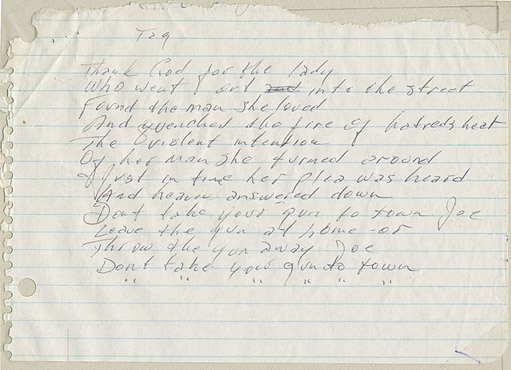 Tag
Thank God for the lady
Who went out into the street
Found the man she loved
And quenched the fire of hatreds heat
The violent intention
Of her man she turned around
Just in time her plea was heard
And heaven answered down
Dont take your gun to town Joe
Leave the gun at home
Throw the gun away Joe
Dont take your gun to town
" " " " " "